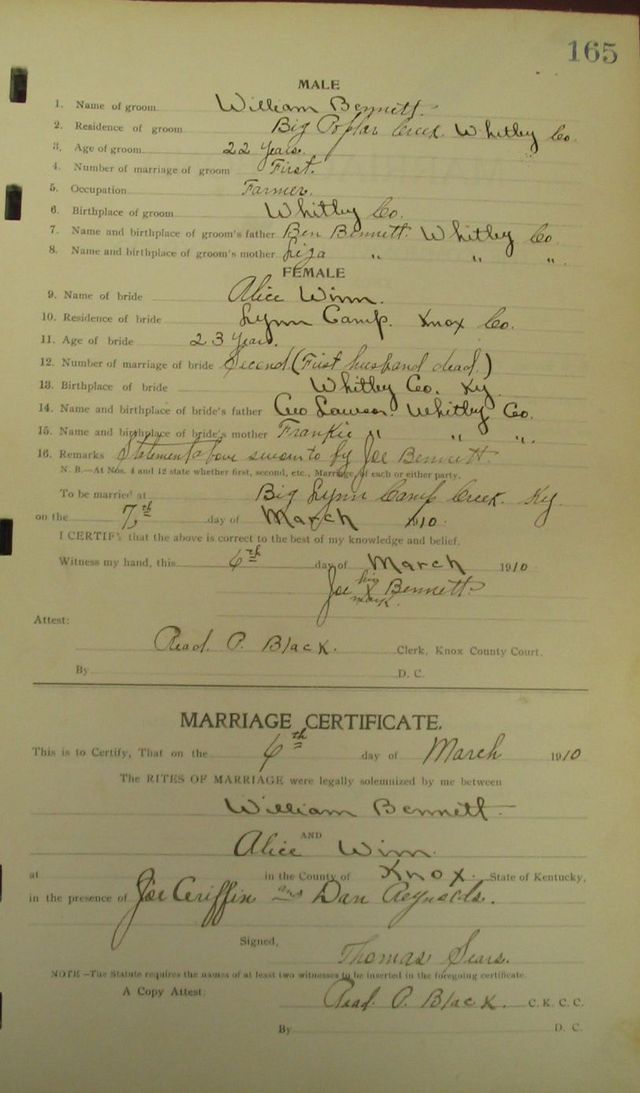 165
MALE
1. Name of groom William Bennett.
2. Residence of groom Big Poplar Creek Whitley Co.
3. Age of groom 22 Years.
4. Number of marriage of groom First.
5. Occupation Farmer.
6. Birthplace of groom Whitley Co.
7. Name and birthplace of groom's father Ben Bennett. Whitley Co.
8. Name and birthplace of groom's mother Liza " " ".
FEMALE
9. Name of bride Alice Winn.
10. Residence of bride Lynn Camp. Knox Co.
11. Age of bride 23 Years.
12. Number of marriage of bride Second (First husband dead.)
13. Birthplace of bride Whitley Co. Ky.
14. Name and birthplace of bride's father Geo Lawson. Whitley Co.
15. Name and birthplace of bride's mother Frankie " " ".
16. Remarks Statement above sworn to by Joe Bennett.
N. B.—At Nos. 4 and 12 state whether first, second, etc., Marriage of each or either party.
To be married at Big Lynn Camp Creek. Ky.
on the 7th day of March 1910.
I CERTIFY that the above is correct to the best of my knowledge and belief.
Witness my hand, this 6th day of March 1910
Joe his X mark Bennett
Attest:
Read. P. Black. Clerk, Knox County Court.
By D. C.
MARRIAGE CERTIFICATE.
This is to Certify, That on the 6th day of March 1910
The RITES OF MARRIAGE were legally solemnized by me between
William Bennett
AND
Alice Winn.
at in the County of Knox. State of Kentucky,
in the presence of Joe Griffin and Dan Reynolds.
Signed,
Thomas Sears.
NOTE—The Statute requires the names of at least two witnesses to be inserted in the foregoing certificate.
A Copy Attest:
Read. P. Black. C. K. C. C.
By D. C.